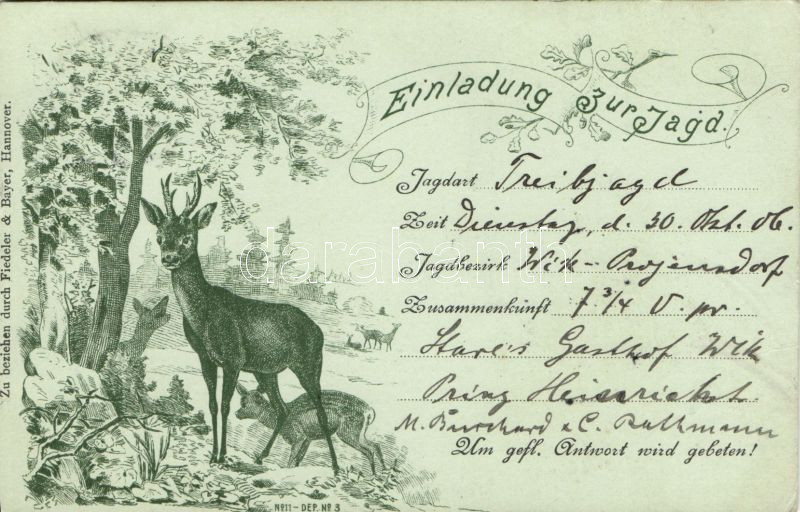 Einladung zur Jagd.
Jagdart Treibjagd
Zeit Dienstag, d. 30. Okt. 06.
Jagdbezirk Wik-Projensdorf
Zusammenkunft 7 3/4 U. pr.
Gasthof Wik
Prinz Heinrichst.
M. Burchard & C. Rathmann
Um gefl. Antwort wird gebeten!
Zu beziehen durch Fiedeler & Bayer, Hannover.
Nº 11 - DEP. Nº 3
darabanth